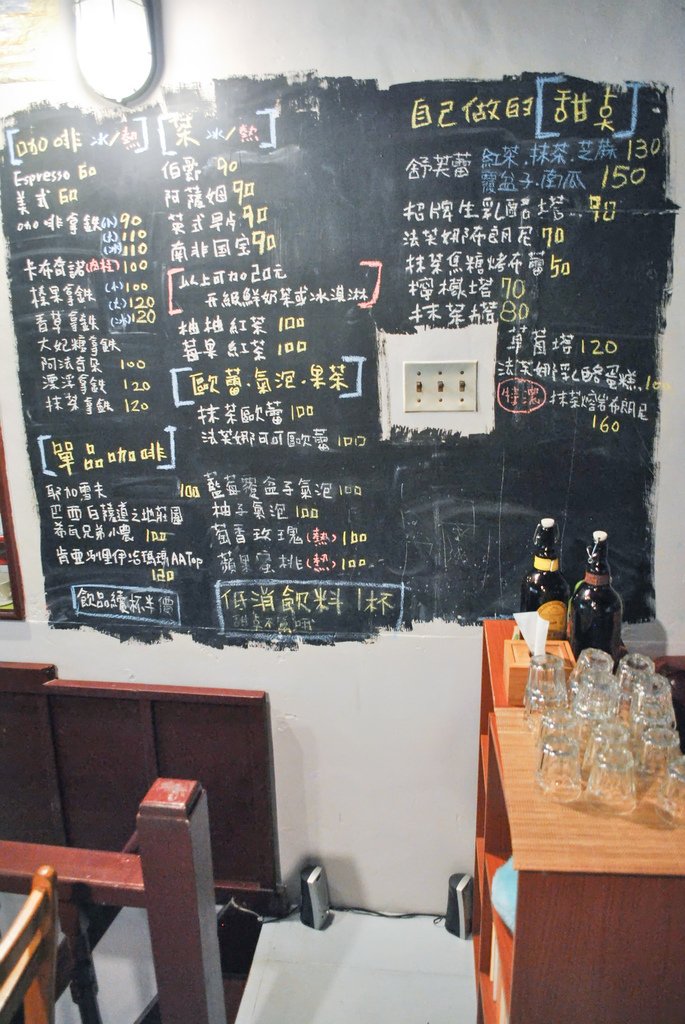 [咖啡 冰/熱]
Espresso 60
美式 60
咖啡拿鐵(小) 90
(大) 110
(冰) 110
卡布奇諾(肉桂) 100
榛果拿鐵 (小) 100
香草拿鐵 (大) 120
(冰) 120
太妃糖拿鐵
阿法奇朵 100
漂浮拿鐵 120
抹茶拿鐵 120
[單品咖啡]
耶加雪夫 100
巴西白薩道之地莊園
100
肯亞 AATop
120
飲品續杯半價
[茶 冰/熱]
伯爵 90
阿薩姆 90
英式早餐 90
南非国宝 90
[以上可加20元
升級鮮奶茶或冰淇淋]
柚柚紅茶 100
莓果紅茶 100
[歐蕾.氣泡.果茶]
抹茶歐蕾 100
法芙娜可可歐蕾 100
藍莓覆盆子氣泡 100
柚子氣泡 100
葡香玫瑰(熱) 100
蘋果蜜桃(熱) 100
低消飲料1杯
自己做的[甜点]
舒芙蕾 紅茶.抹茶.芝麻 130
覆盆子.南瓜 150
招牌生乳酪塔 90
法芙娜布朗尼 70
抹茶焦糖烤布蕾 50
檸檬塔 70
抹茶塔 80
草莓塔 120
法芙娜乳酪蛋糕 100
特濃 抹茶熔岩布朗尼
160